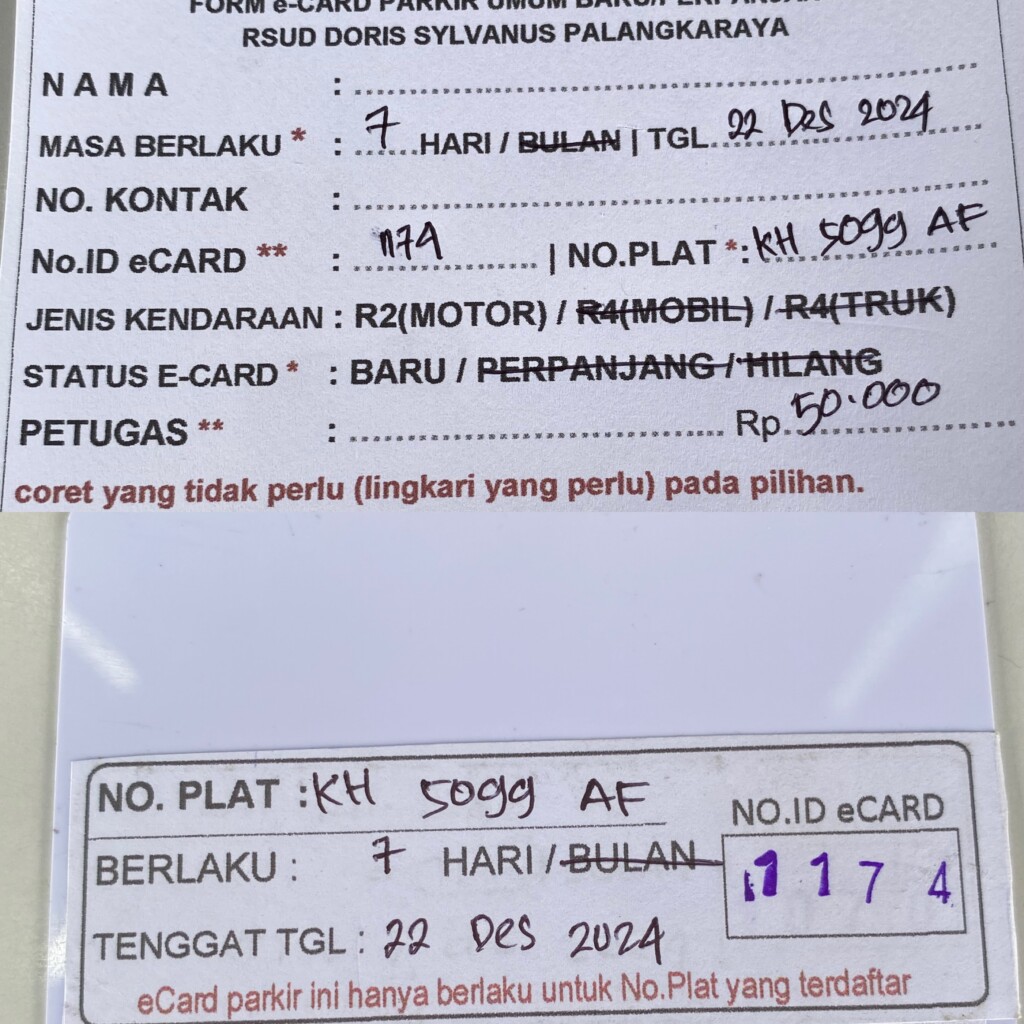 FORM e-CARD PARKIR UMUM
RSUD DORIS SYLVANUS PALANGKARAYA
NAMA :
MASA BERLAKU * : 7 HARI / BULAN | TGL. 22 Des 2024
NO. KONTAK :
No.ID eCARD ** : 1174 | NO.PLAT *: KH 5099 AF
JENIS KENDARAAN : R2(MOTOR) / R4(MOBIL) / R4(TRUK)
STATUS E-CARD * : BARU / PERPANJANG / HILANG
PETUGAS ** : Rp. 50.000
coret yang tidak perlu (lingkari yang perlu) pada pilihan.
NO. PLAT : KH 5099 AF
NO.ID eCARD
BERLAKU : 7 HARI / BULAN
1174
TENGGAT TGL : 22 Des 2024
eCard parkir ini hanya berlaku untuk No.Plat yang terdaftar